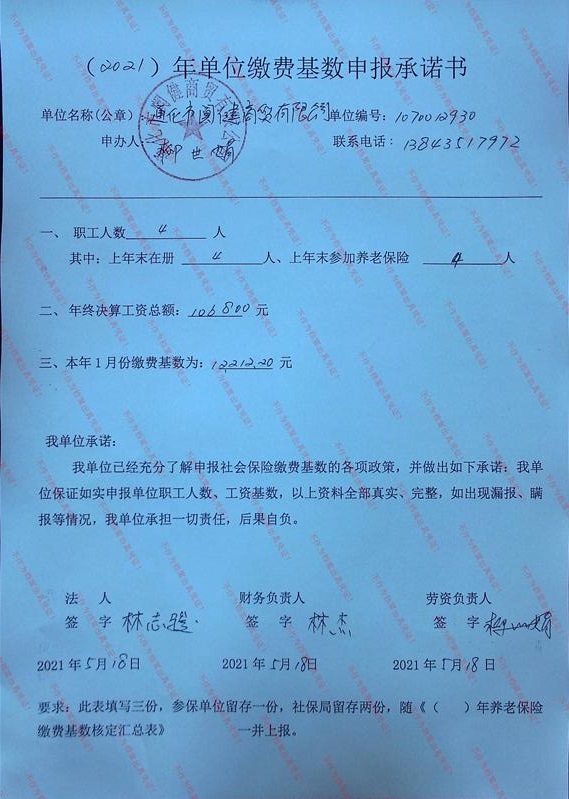 （2021）年单位缴费基数申报承诺书
单位名称(公章)：通化市阁健商贸有限公司 单位编号：1070012930
申办人：柳世娟 联系电话：13843517972
一、 职工人数 4 人
其中：上年末在册 4 人、上年末参加养老保险 4 人
二、年终决算工资总额：106800 元
三、本年1月份缴费基数为：12212.20 元
我单位承诺：
我单位已经充分了解申报社会保险缴费基数的各项政策，并做出如下承诺：我单
位保证如实申报单位职工人数、工资基数，以上资料全部真实、完整，如出现漏报、瞒
报等情况，我单位承担一切责任，后果自负。
法 人 财务负责人 劳资负责人
签 字 林志 签 字 林杰 签 字 柳世娟
2021年5月18日 2021年5月18日 2021年5月18日
要求：此表填写三份，参保单位留存一份，社保局留存两份，随《（ ）年养老保险
缴费基数核定汇总表》 一并上报。